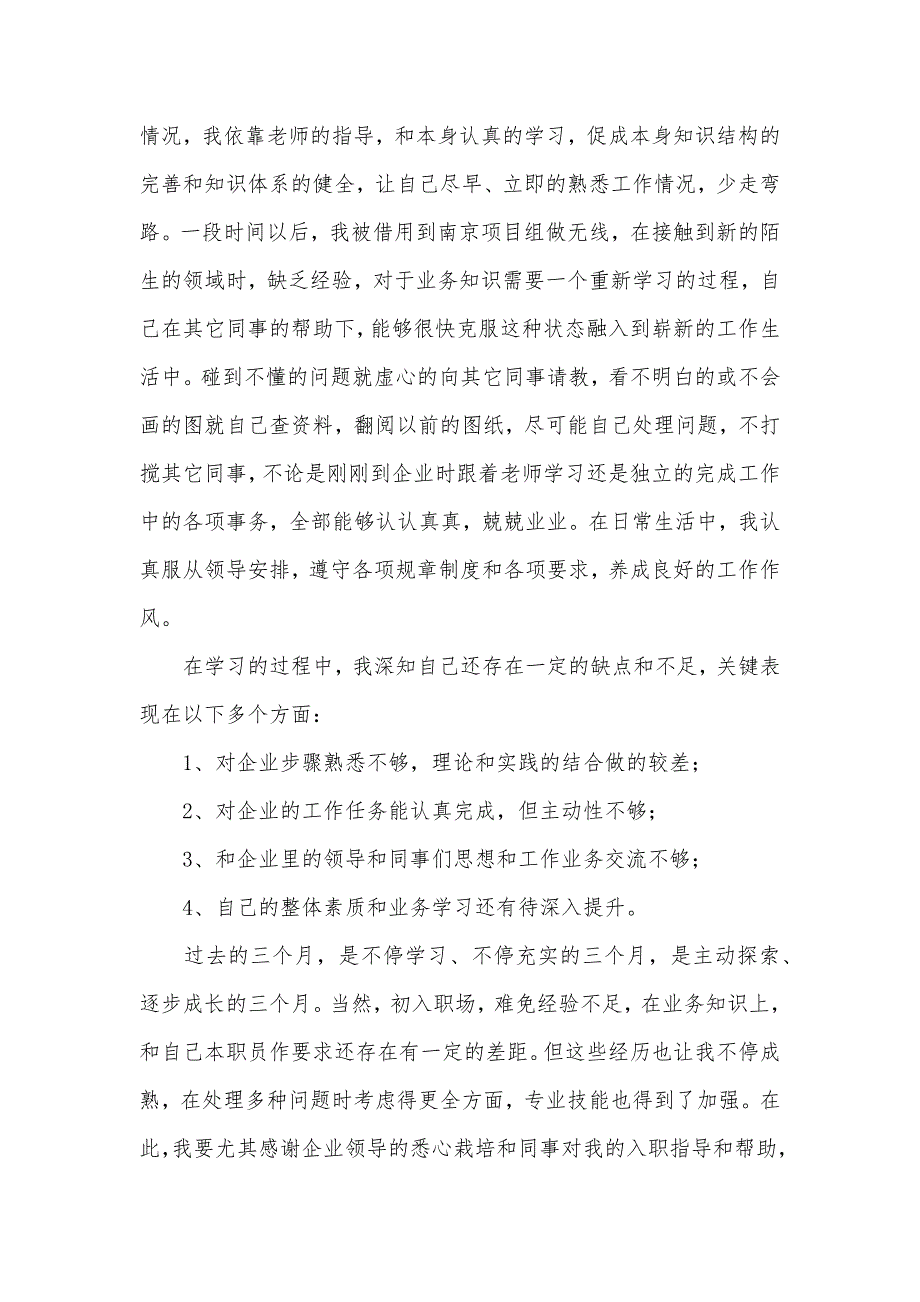 情况，我依靠老师的指导，和本身认真的学习，促成本身知识结构的
完善和知识体系的健全，让自己尽早、立即的熟悉工作情况，少走弯
路。一段时间以后，我被借用到南京项目组做无线，在接触到新的陌
生的领域时，缺乏经验，对于业务知识需要一个重新学习的过程，自
己在其它同事的帮助下，能够很快克服这种状态融入到崭新的工作生
活中。碰到不懂的问题就虚心的向其它同事请教，看不明白的或不会
画的图就自己查资料，翻阅以前的图纸，尽可能自己处理问题，不打
搅其它同事，不论是刚刚到企业时跟着老师学习还是独立的完成工作
中的各项事务，全部能够认认真真，兢兢业业。在日常生活中，我认
真服从领导安排，遵守各项规章制度和各项要求，养成良好的工作作
风。
在学习的过程中，我深知自己还存在一定的缺点和不足，关键表
现在以下多个方面：
1、对企业步骤熟悉不够，理论和实践的结合做的较差；
2、对企业的工作任务能认真完成，但主动性不够；
3、和企业里的领导和同事们思想和工作业务交流不够；
4、自己的整体素质和业务学习还有待深入提升。
过去的三个月，是不停学习、不停充实的三个月，是主动探索、
逐步成长的三个月。当然，初入职场，难免经验不足，在业务知识上，
和自己本职员作要求还存在有一定的差距。但这些经历也让我不停成
熟，在处理多种问题时考虑得更全方面，专业技能也得到了加强。在
此，我要尤其感谢企业领导的悉心栽培和同事对我的入职指导和帮助，